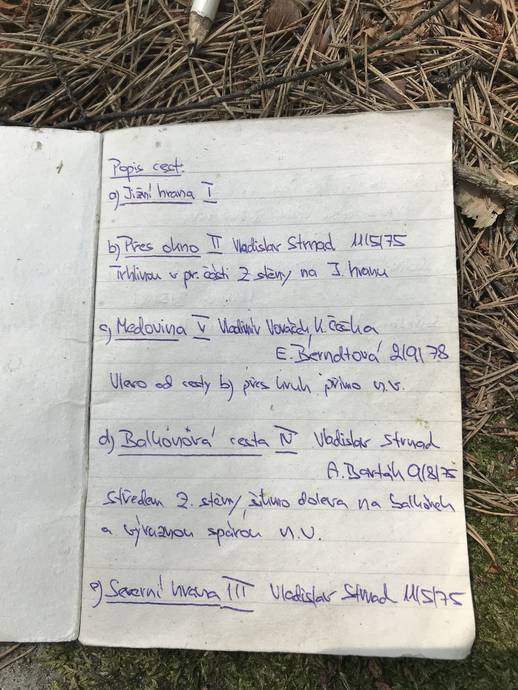 Popis cest:
a) Jižní hrana I
b) Přes okno II Vladislav Strnad 11/5/75
Trhlinou v pr. části Z stěny na J. hranu
c) Medovina V Vladimír K. Češka
E. Berndtová 2/9/78
Vlevo od cesty b) přes kruh přímo n.v.
d) Balkónová cesta IV Vladislav Strnad
A. Barták 9/8/75
Středem Z. stěny, šikmo doleva na balkónek
a výraznou spárou n.v.
e) Severní hrana III Vladislav Strnad 11/5/75